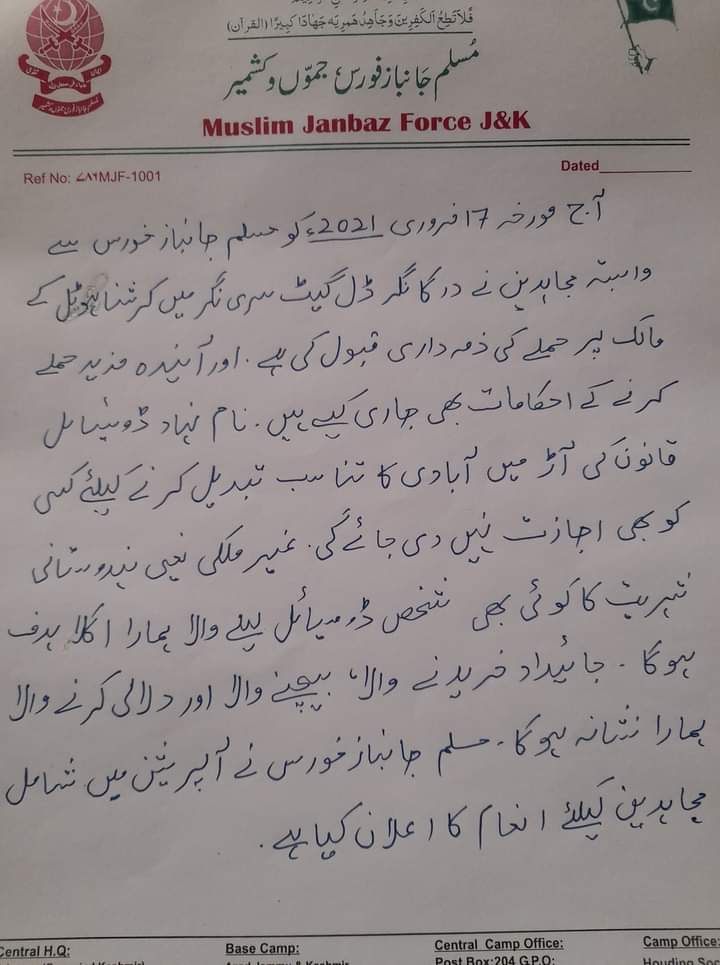 فَلَا تُطِعِ الْكٰفِرِينَ وَجَاهِدْهُم بِهٖ جِهَادًا كَبِيرًا (القرآن)
مُسلم جَانباز فورس جموّں و کشمیر
Muslim Janbaz Force J&K
Ref No: ۷۸۶MJF-1001
Dated
آج مورخہ 17 فروری 2021ء کو مسلم جانباز فورس سے
وابستہ مجاہدین نے درگا نگر ڈلگیٹ سری نگر میں کرشنا ہوٹل کے
مالک پر حملے کی ذمہ داری قبول کی ہے۔ اور آئیندہ مزید حملے
کرنے کے احکامات بھی جاری کیے ہیں۔ نام نہاد ڈومیسائل
قانون کی آڑ میں آبادی کا تناسب تبدیل کرنے کیلئے کسی
کو بھی اجازت نہیں دی جائے گی۔ غیر ملکی یعنی ہندوستانی
شہریت کا کوئی بھی شخص ڈومیسائل لینے والا ہمارا اگلا ہدف
ہوگا۔ جائیداد خریدنے والا، بیچنے والا اور دلالی کرنے والا
ہمارا نشانہ ہوگا۔ مسلم جانباز فورس نے آپریشن میں شامل
مجاہدین کیلئے انعام کا اعلان کیا ہے۔
Central H.Q:
Base Camp:
Central Camp Office:
Camp Office:
Post Box:204 G.P.O: